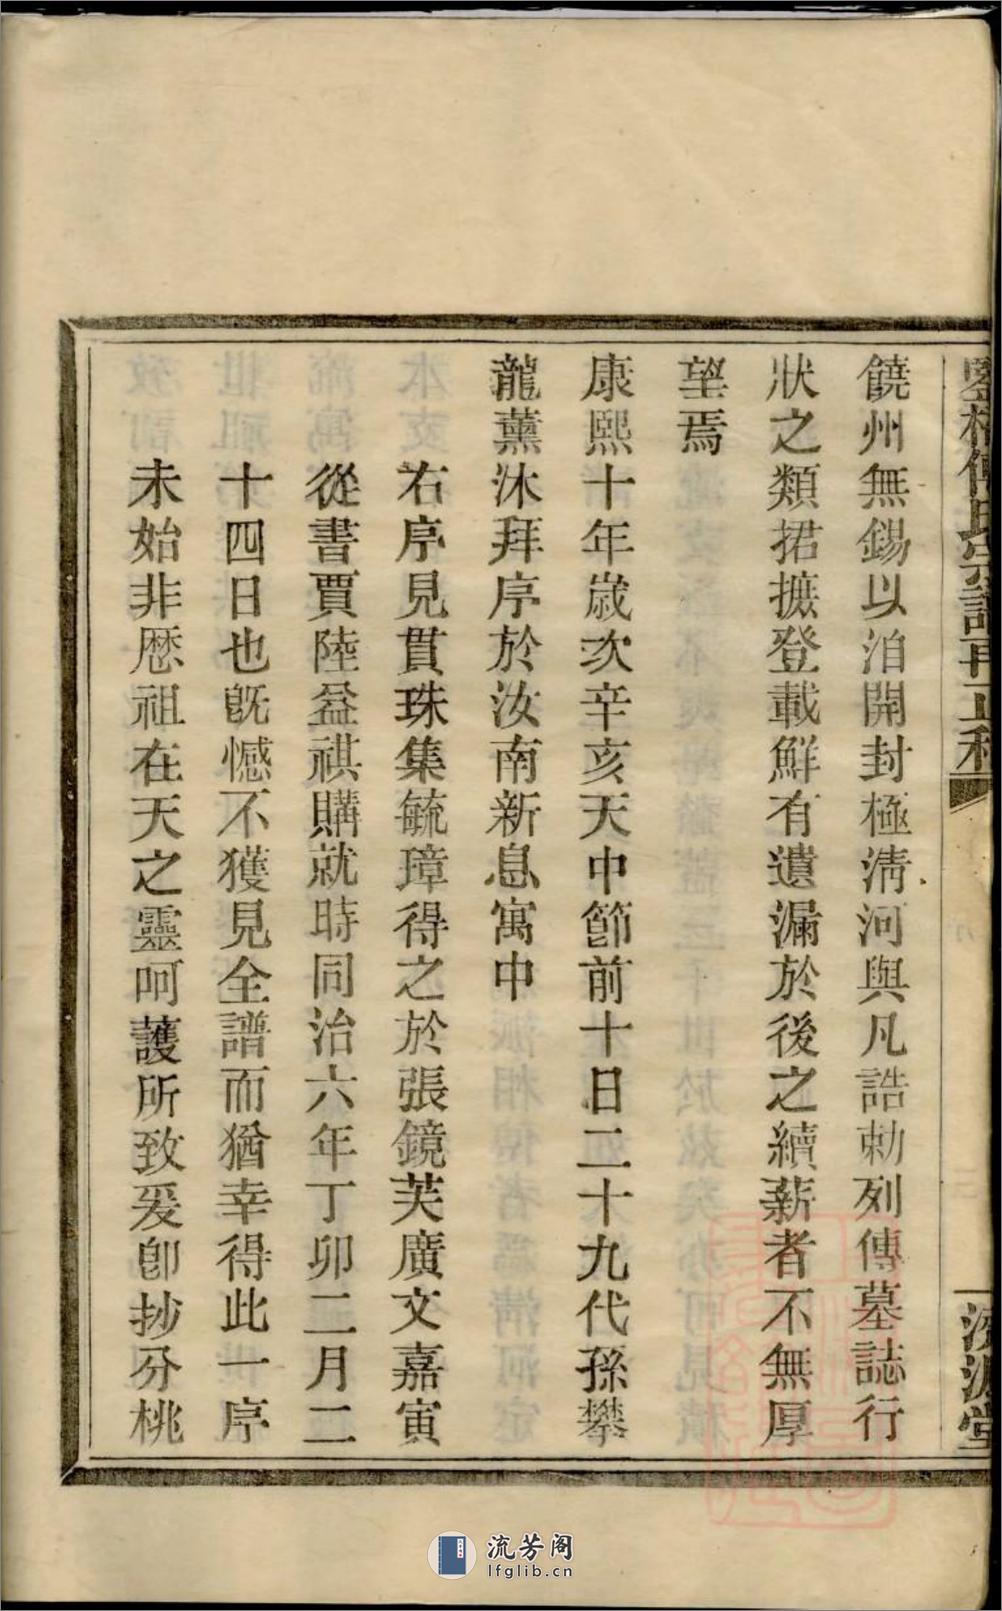 饒州無錫以洎開封極淸河與凡誥勅列傳墓誌行
狀之類捃摭登載鮮有遺漏於後之續薪者不無厚
望焉
康熙十年歲次辛亥天中節前十日二十九代孫攀
龍薰沐拜序於汝南新息寓中
右序見貫珠集毓璋得之於張鏡芙廣文嘉寅
從書賈陸益祺購就時同治六年丁卯二月二
十四日也旣憾不獲見全譜而猶幸得此一序
未始非厯祖在天之靈呵護所致爰卽抄分桃
流芳阁
lfglib.cn